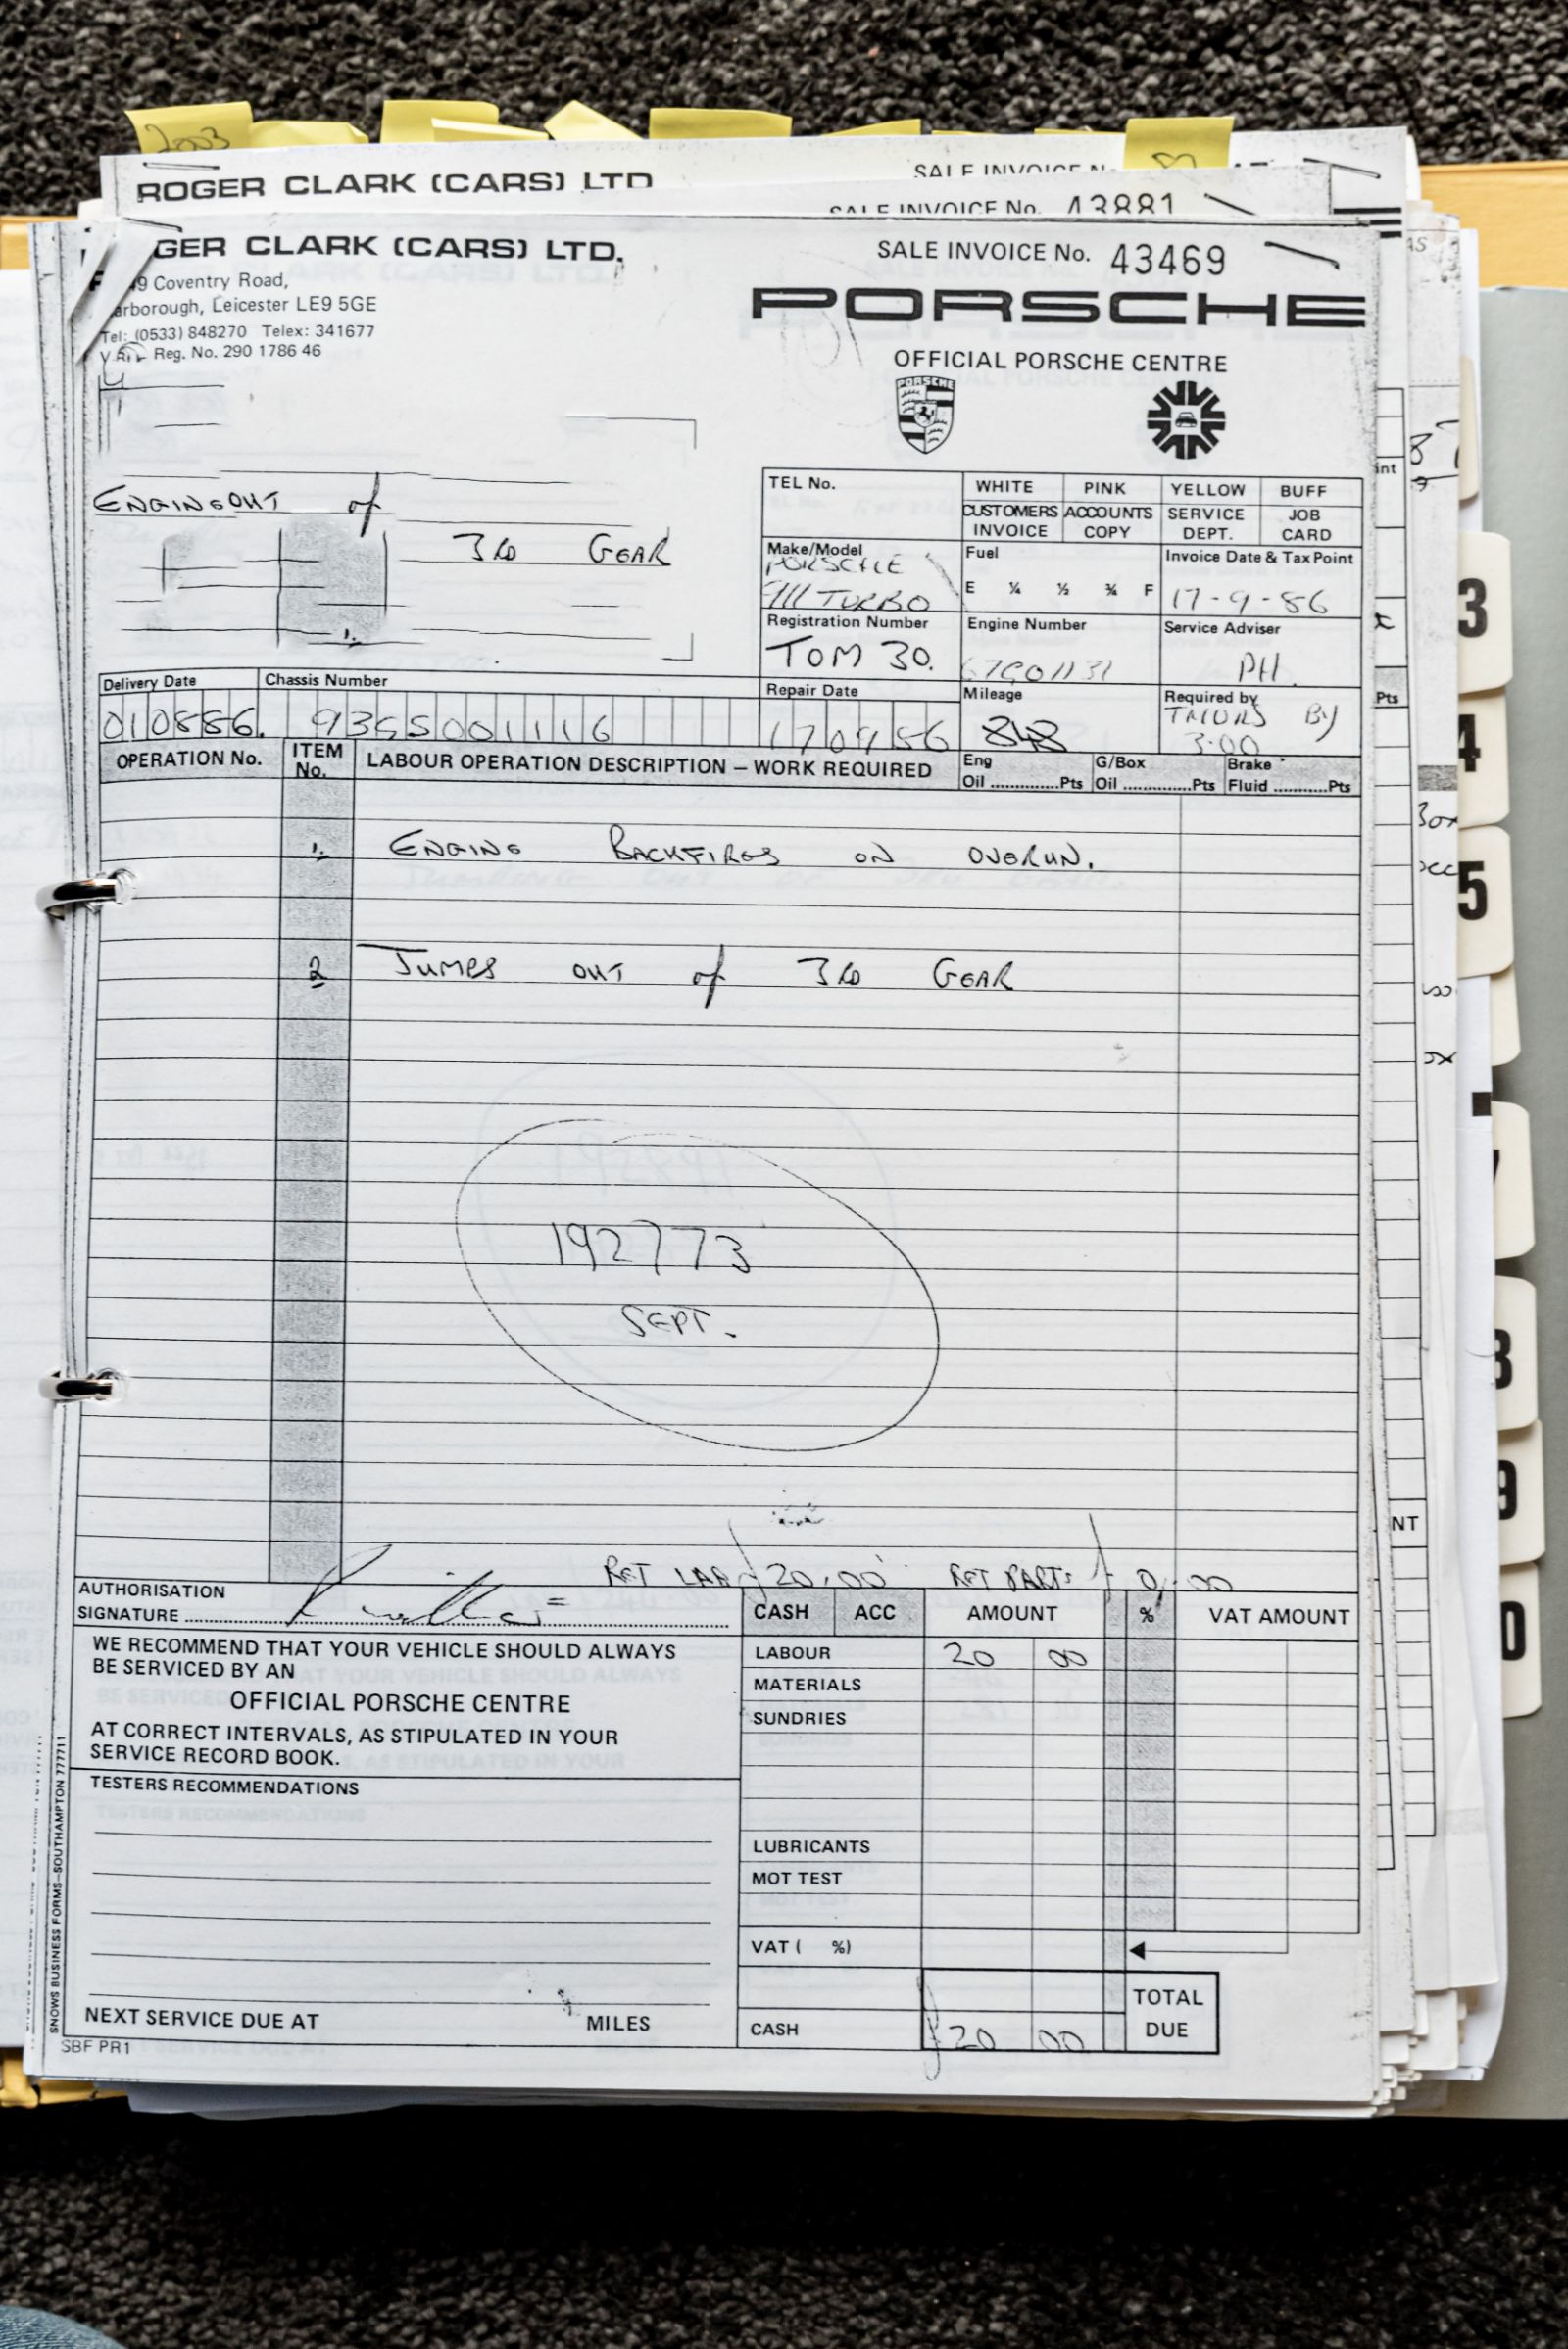 2003
ROGER CLARK (CARS) LTD
SALE INVOICE N
SALE INVOICE No. 43881
GER CLARK (CARS) LTD.
SALE INVOICE No. 43469
9 Coventry Road,
arborough, Leicester LE9 5GE
Tel: (0533) 848270 Telex: 341677
Reg. No. 290 1786 46
PORSCHE
OFFICIAL PORSCHE CENTRE
PORSCHE
ENGINE OUT of
3RD GEAR
TEL No.
WHITE PINK YELLOW BUFF
CUSTOMERS INVOICE
ACCOUNTS COPY
SERVICE DEPT.
JOB CARD
Make/Model
PORSCHE
911 TURBO
Fuel
E ¼ ½ ¾ F
Invoice Date & Tax Point
17-9-86
Registration Number
TOM 30.
Engine Number
67G01131
Service Adviser
PH.
Delivery Date
010886.
Chassis Number
93GS001116
Repair Date
170986
Mileage
848
Required by
BY
3.00
OPERATION No.
ITEM No.
LABOUR OPERATION DESCRIPTION – WORK REQUIRED
Eng Oil .............Pts
G/Box Oil .............Pts
Brake Fluid ..........Pts
1. ENGINE BACKFIRES ON OVERUN.
2 JUMPS OUT of 3RD GEAR
192773
SEPT.
RET LAB £20.00 RET PARTS £0.00
AUTHORISATION
SIGNATURE
CASH ACC AMOUNT % VAT AMOUNT
WE RECOMMEND THAT YOUR VEHICLE SHOULD ALWAYS
BE SERVICED BY AN
OFFICIAL PORSCHE CENTRE
AT CORRECT INTERVALS, AS STIPULATED IN YOUR
SERVICE RECORD BOOK.
TESTERS RECOMMENDATIONS
LABOUR 20 00
MATERIALS
SUNDRIES
LUBRICANTS
MOT TEST
VAT ( %)
TOTAL DUE
CASH £20 00
NEXT SERVICE DUE AT MILES
SBF PR1
SNOWS BUSINESS FORMS–SOUTHAMPTON 777711
int
Pts
NT
3
4
5
7
8
9
0